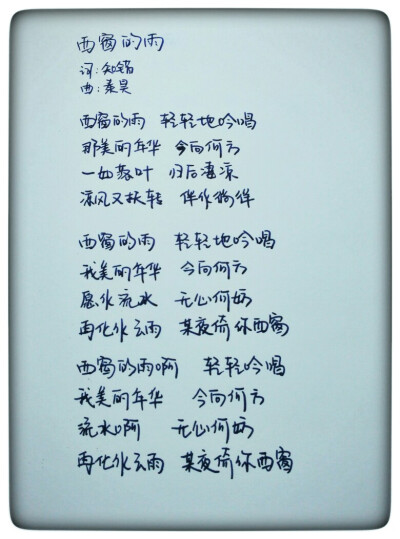 西窗的雨
词:知错
曲:姜昊
西窗的雨 轻轻地吟唱
那美的年华 今向何方
一如落叶 归后凄凉
凉风又扶转 伴作
西窗的雨 轻轻地吟唱
我美的年华 今向何方
愿作流水 无心何妨
再化作云雨 某夜倚你西窗
西窗的雨啊 轻轻吟唱
我美的年华 今向何方
流水啊 无心何妨
再化作云雨 某夜倚你西窗